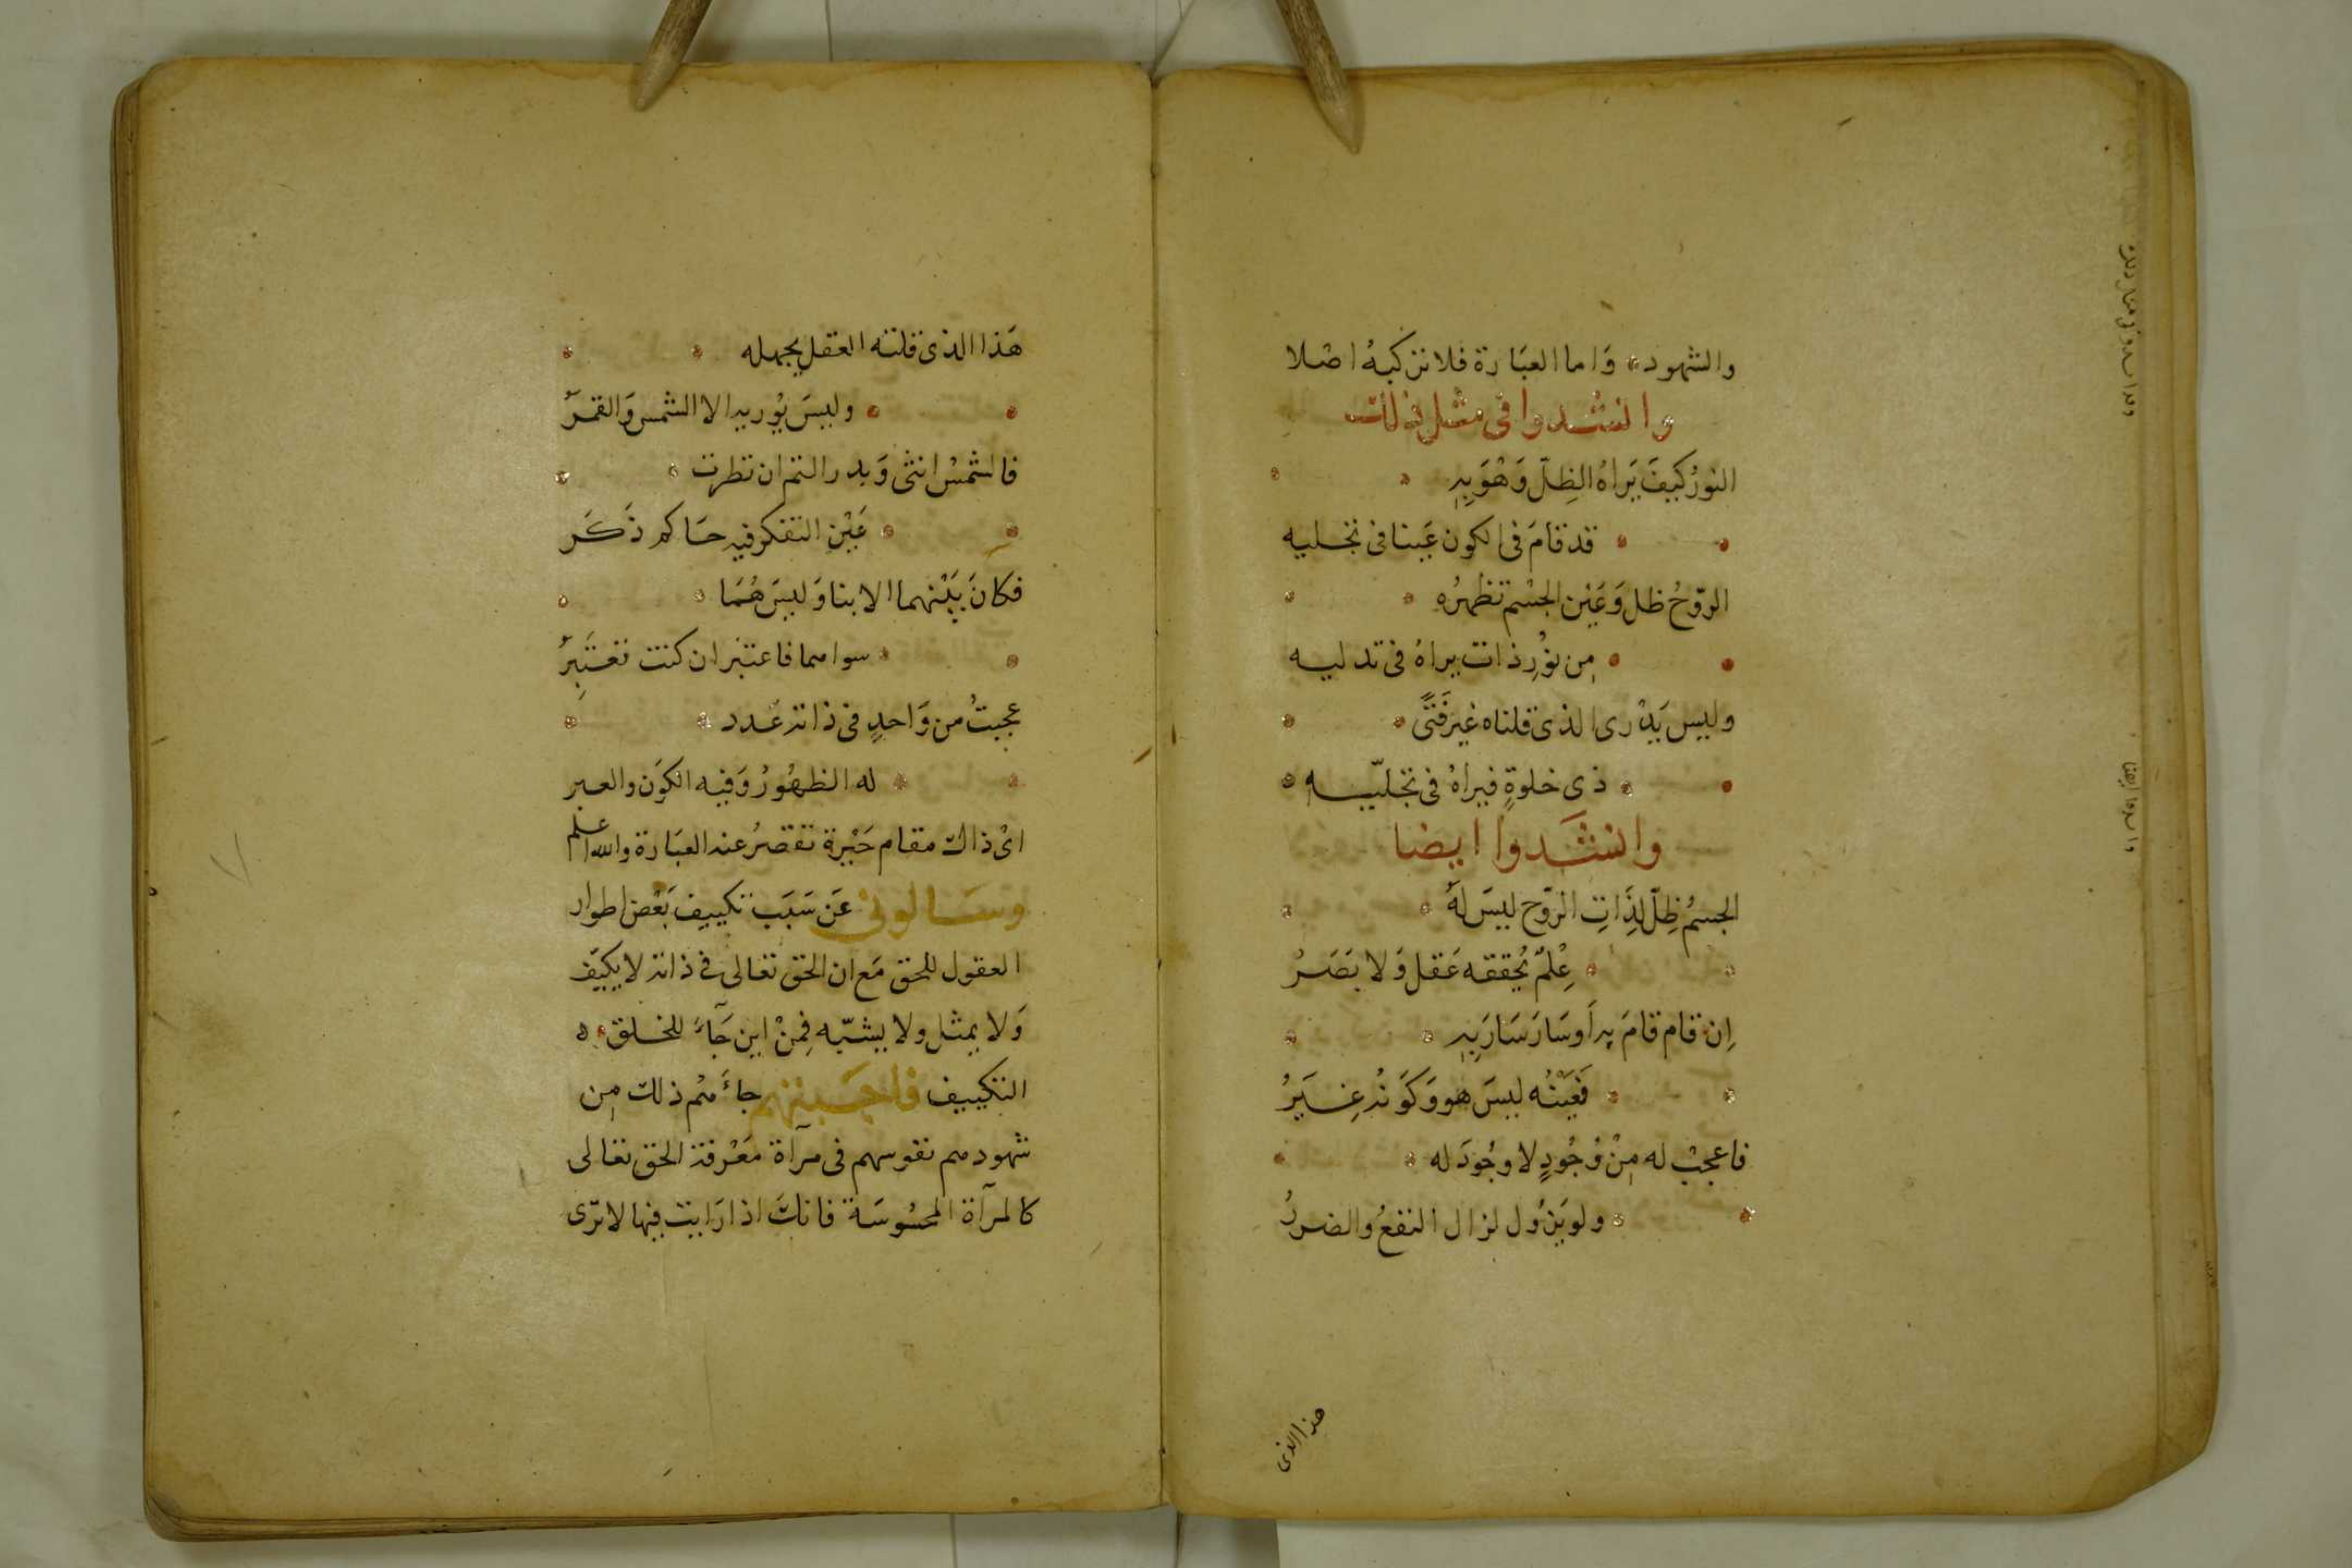 والشهود وَاما العبَارة فلا تزكيهُ اصْلا
وانشدوا فى مثل ذلك
النورُ كيفَ يَراهُ الظِلّ وَهْوَ بِهِ
قد قامَ فى الكون عَينا فى تجليه
الرّوحُ ظل وَعَين الجسْم تظهرُه
مِن نوُرِ ذات يراهُ فى تدليه
وليس يَدْرى الذى قلناه غير فَتًى
ذى خلوةٍ فيراهُ فى تجلّيه
وانشَدوا ايضا
الجسمُ ظِلّ لِذَاتِ الرّوح ليسَ لهُ
عِلْمٌ يُحققه عَقل وَلا بَصَرُ
اِن قام قامَ بِه اَوسَارَ سَارَ بِهِ
فَعَيْنُه ليسَ هو وَكَونُه غِيَرُ
فاعجبْ له مِنْ وُجُودٍ لا وجُودَ له
ولو يَزُول لزال النفعُ والضررُ
هذا الذى
هَذا الذى قلته العقل يجهله
وليسَ يوُريه الا الشمس وَالقمرُ
فالشمسُ انثى وَبدر التم ان نظرت
عَيْن التفكر فيه حَاكم ذَكَر
فكانَ بَيْنهما الابنا وَليسَ هُمَا
سواهما فاعتبر ان كنت تعتَبِرُ
عجبتُ من وَاحدٍ فى ذاته عَدد
له الظهُورُ وَفيه الكوَن والعبر
اىْ ذاك مقام حَيْرة تقصرُ عنه العبَارة والله اعلم
وسَالونى عَن سَبَب تكييف بَعْض اطوار
العقول للحق مَع ان الحق تعالى فى ذاته لا يكيَف
وَلا يمثل ولا يشبّه فِمنْ اين جَآءَ للخلق
التكييف فاجَبتهم جاءَهُم ذلك مِن
شهودهم نفوسهم فى مرآة مَعْرفة الحق تعالى
كالمرآة المحسُوسَة فانكَ اذا رَايت فيها لا ترى